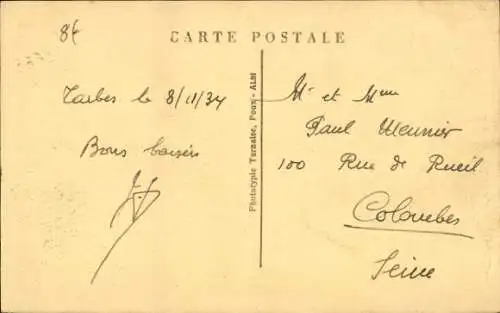 8f
CARTE POSTALE
Tarbes le 8/11/34
Bons baisers
Phototypie Tarzalec, Poux - ALBI
Mr et Mme
Paul Meunier
100 Rue de Rueil
Colombes
Seine